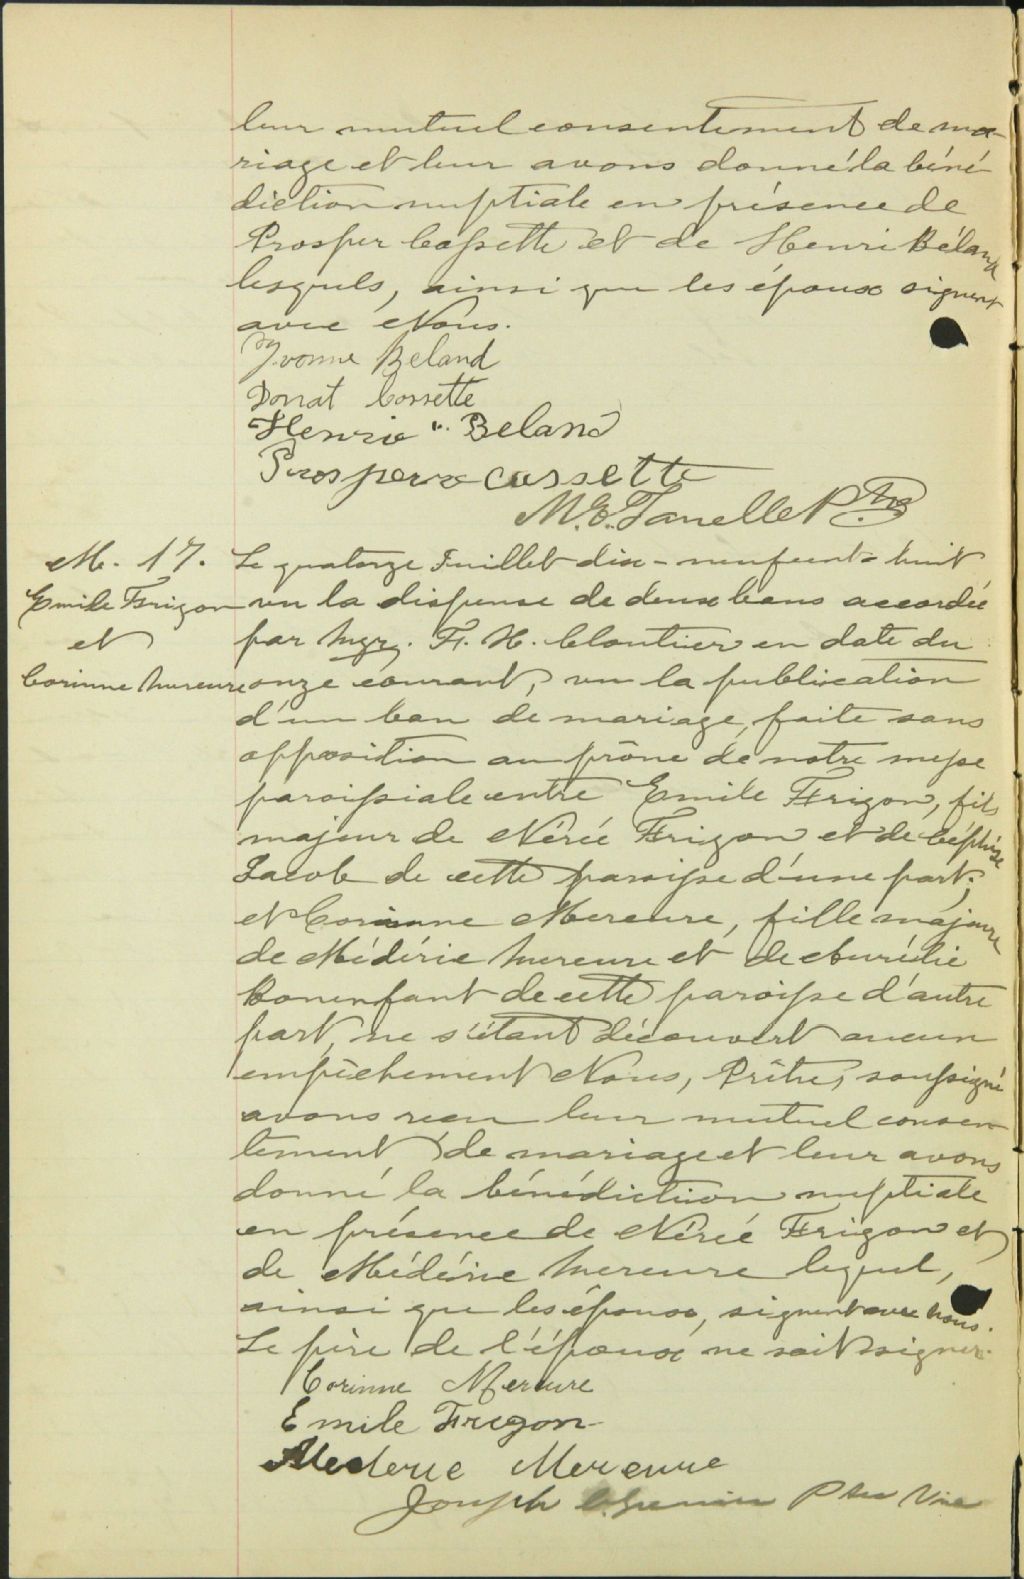 leur mutuel consentement de ma-
riage et leur avons donné la béné-
diction nuptiale en présence de
Prosper Cossette et de Henri Béland
lesquels, ainsi que les époux signent
avec Nous.
Yvonne Beland
Donat Cossette
Henrie Beland
Prosper cossette
M. E. Janelle Ptre
M. 17.
Emile Frigon
et
Corinne Mercure
Le quatorze Juillet dix-neuf cent-huit
vu la dispense de deux bans accordée
par Mgr. F. X. Cloutier en date du
onze courant, vu la publication
d'un ban de mariage, faite sans
opposition au prône de notre messe
paroissiale entre Emile Frigon, fils
majeur de Nérée Frigon et de Céphise
Jacob de cette paroisse d'une part;
et Corinne Mercure, fille majeure
de Médéric Mercure et de Aurélie
Bonenfant de cette paroisse d'autre
part, ne s'étant découvert aucun
empêchement Nous, Prêtre, soussigné
avons reçu leur mutuel consen-
tement de mariage et leur avons
donné la bénédiction nuptiale
en présence de Nérée Frigon et
de Médéric Mercure lequel,
ainsi que les époux, signent avec nous.
Le père de l'époux ne sait signer.
Corinne Mercure
Emile Frigon
Mederic Mercure
Joseph Ptre Vic